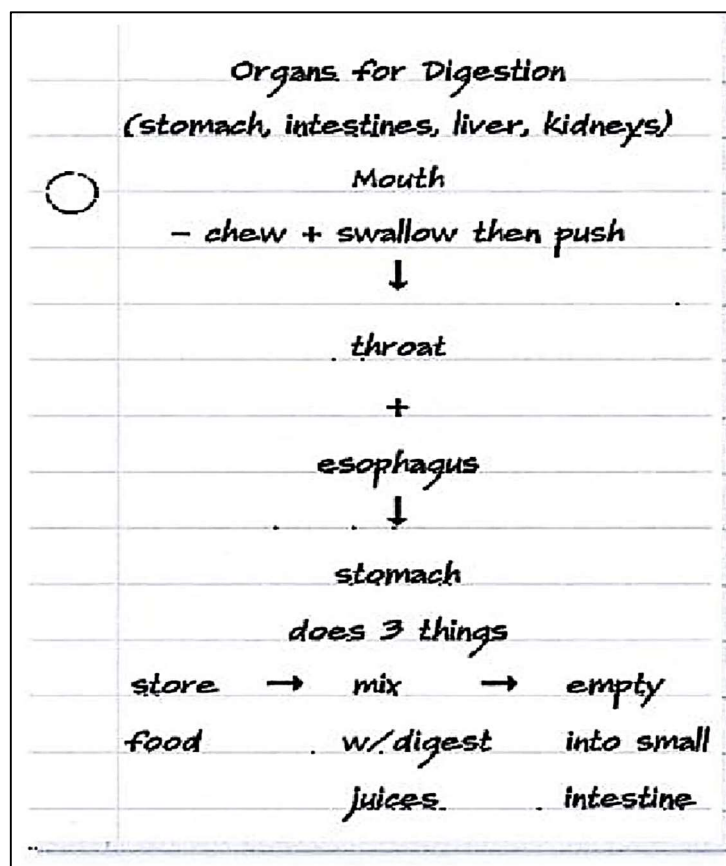 Organs for Digestion
(stomach, intestines, liver, kidneys)
Mouth
- chew + swallow then push
↓
throat
+
esophagus
↓
stomach
does 3 things
store → mix → empty
food w/digest into small
juices intestine